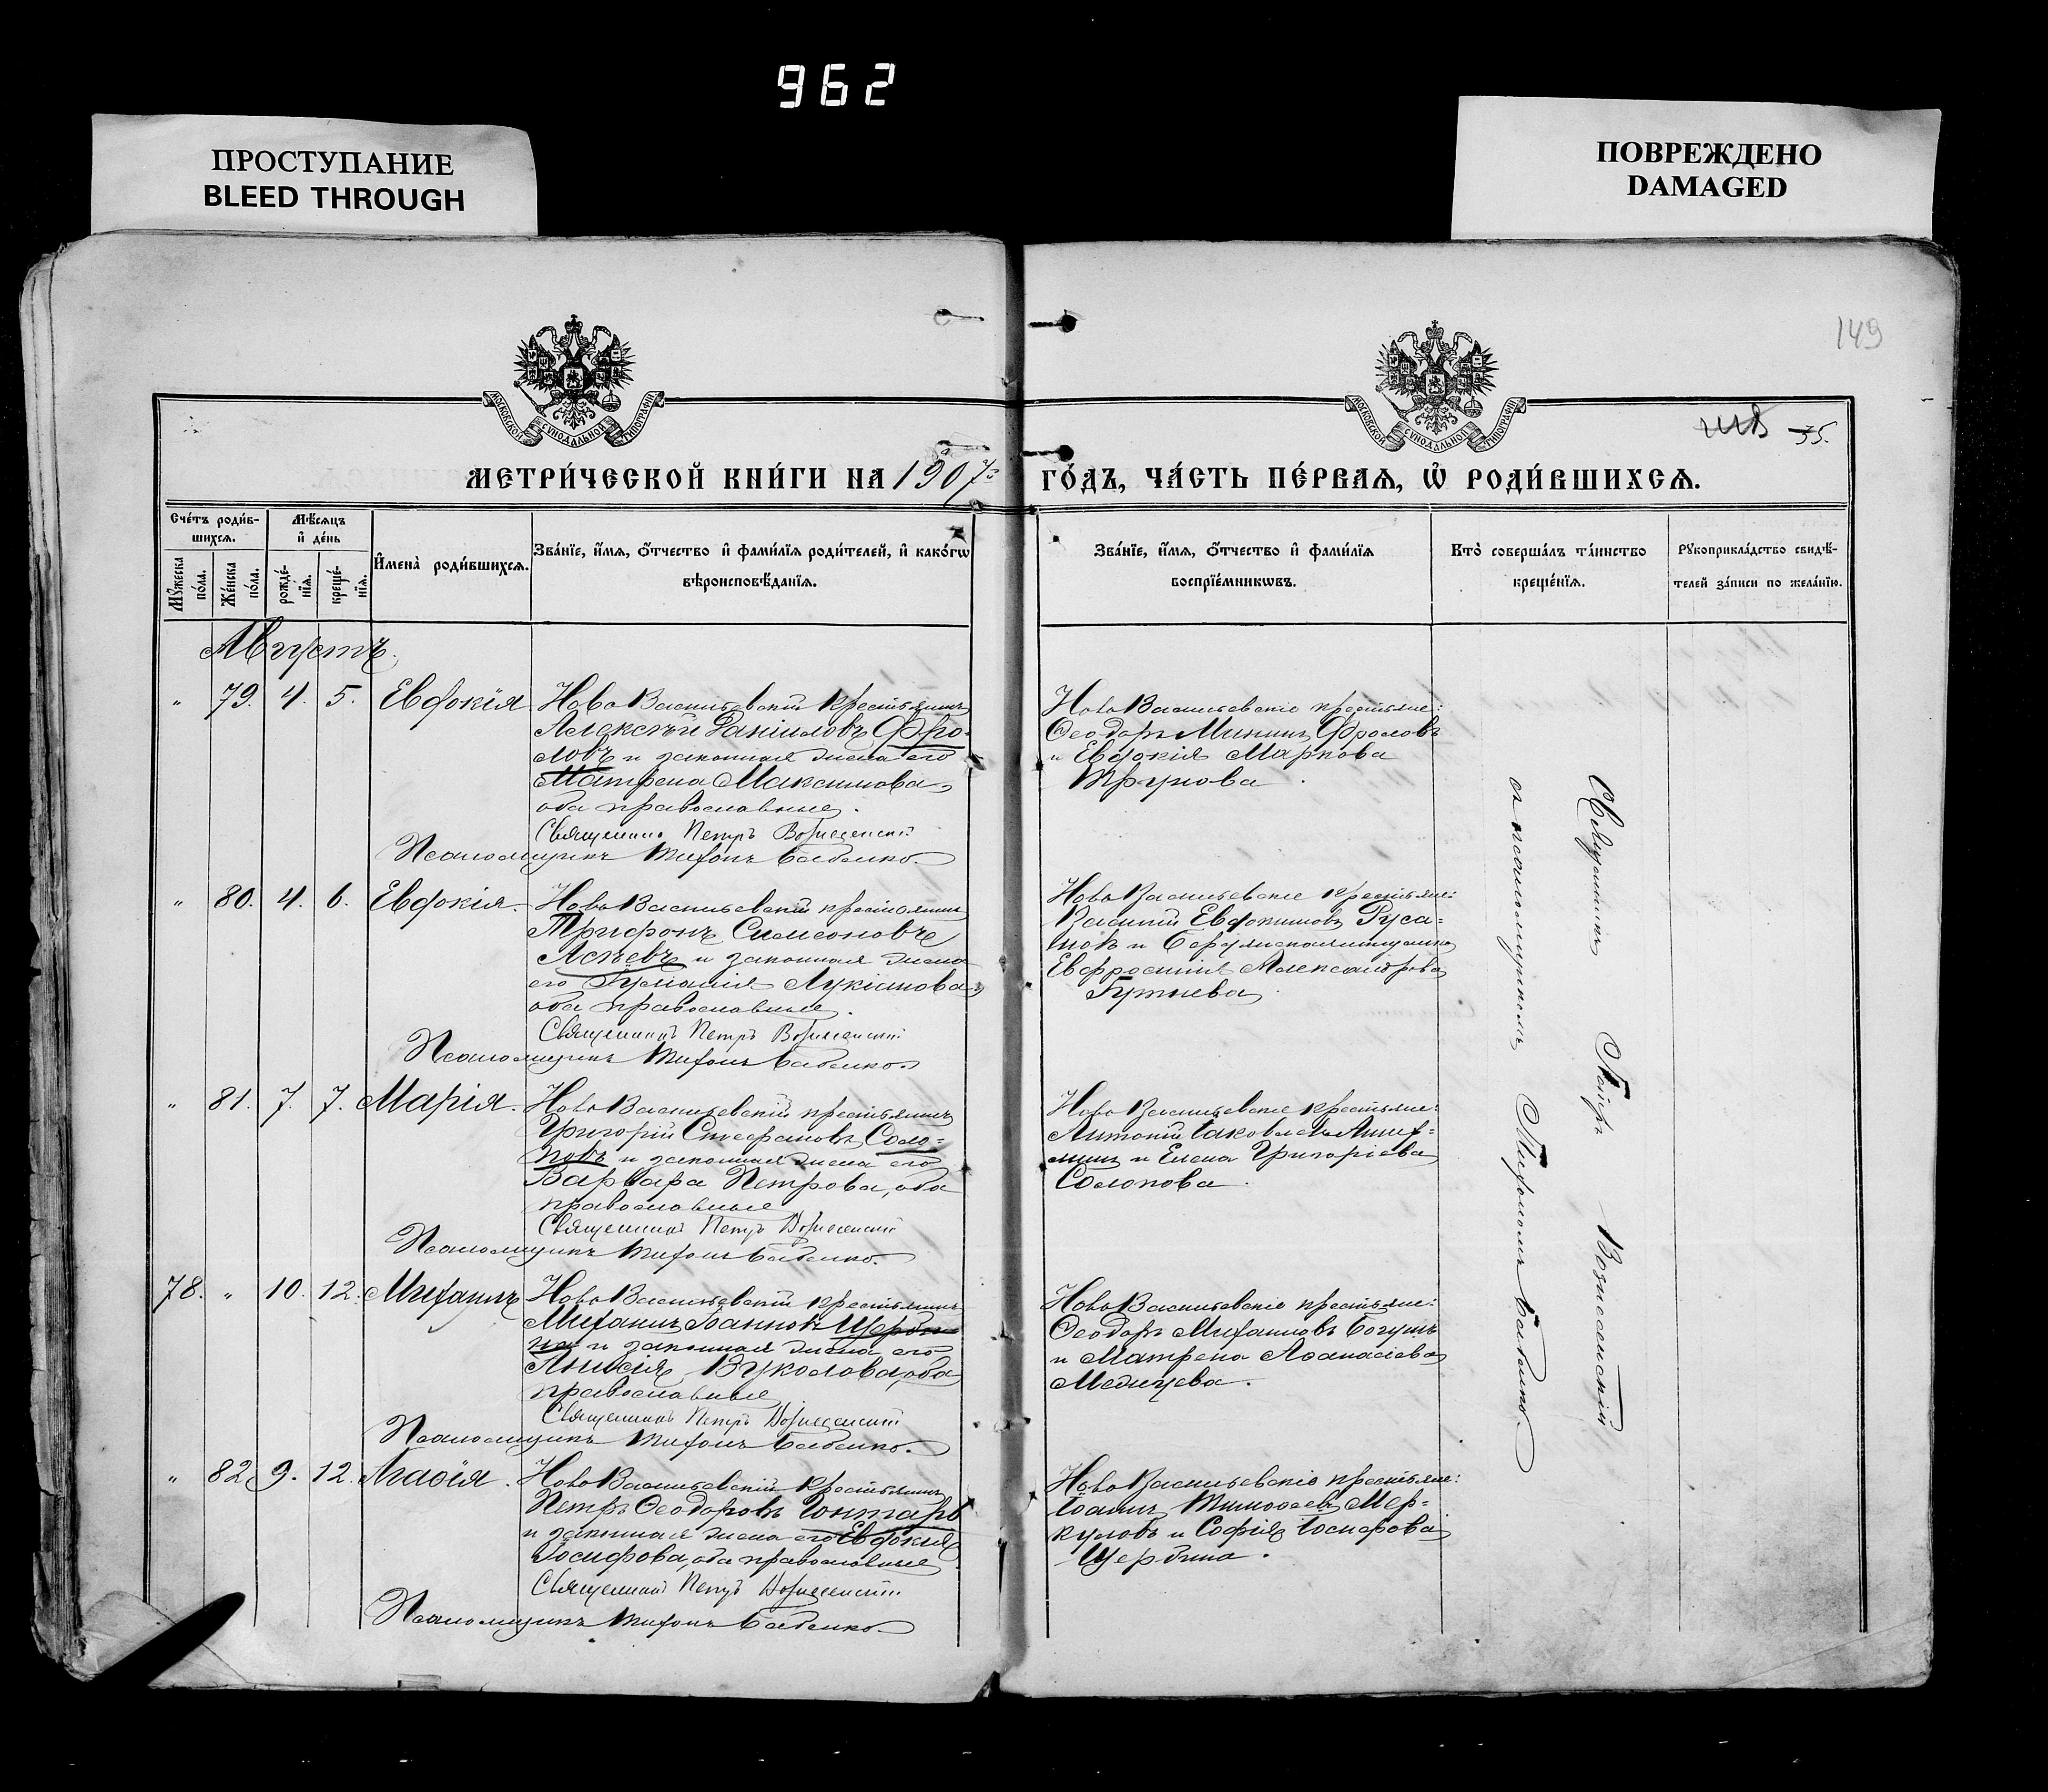 962
ПРОСТУПАНИЕ
BLEED THROUGH
ПОВРЕЖДЕНО
DAMAGED
149
МОСКОВСКОЙ СѴНОДАЛЬНОЙ ТИПОГРАФІИ
МОСКОВСКОЙ СѴНОДАЛЬНОЙ ТИПОГРАФІИ
35.
МЕТРИ́ЧЕСКОЙ КНИ́ГИ НА 1907
ГО́ДЪ, ЧА́СТЬ ПЕ́РВАѦ, Ѡ҆ РОДИ́ВШИХСѦ.
Сче́тъ роди́в-
шихсѧ.
Мѣ́сѧцъ
и҆ де́нь
Мꙋ́жеска
по́ла.
Же́нска
по́ла.
рожде́-
нїѧ.
креще́-
нїѧ.
И҆мена̀ роди́вшихсѧ.
Зва́нїе, и҆́мѧ, ѻ҆́тчество и҆ фами́лїѧ роди́телей, и҆ како́гѡ
вѣроисповѣ́данїѧ.
Зва́нїе, и҆́мѧ, ѻ҆́тчество и҆ фами́лїѧ
воспрїе́мникѡвъ.
Кто̀ соверша́лъ та́инство
креще́нїѧ.
Рꙋкоприкла́дство свидѣ́-
телей за́писи по жела́нїю.
Августъ.
" 79. 4. 5. Евдокія
Ново Васильевскій крестьянинъ
Алексѣй Даніиловъ Фро-
ловъ и законная жена его
Матрена Максимова,
оба православные.
Священникъ Петръ Вознесенскій
Псаломщикъ Тихонъ Бабенко.
Ново Васильевскіе крестьяне:
Ѳеодоръ Мининъ Фроловъ
и Евдокія Маркова
Трунова
" 80. 4. 6. Евдокія.
Ново Васильевскій крестьянинъ
Трифонъ Симеоновъ
Асѣевъ и законная жена
его Лукіанова,
оба православные.
Священникъ Петръ Вознесенскій
Псаломщикъ Тихонъ Бабенко.
Ново Васильевскіе крестьяне:
Василій Евдокимовъ Руса-
ковъ и
Евфросинія Александрова
" 81. 7. 7. Марія.
Ново Васильевскій крестьянинъ
Григорій Стефановъ Соло-
повъ и законная жена его
Варвара Петрова, оба
православные
Священникъ Петръ Вознесенскій
Псаломщикъ Тихонъ Бабенко.
Ново Васильевскіе крестьяне:
Антоній Іаковлевъ
и Елена Григоріева
Солопова.
78. " 10. 12. Михаилъ
Ново Васильевскій крестьянинъ
Михаилъ Іоанновъ Щерби-
на и законная жена его
Анисія Вуколова, оба
православные
Священникъ Петръ Вознесенскій
Псаломщикъ Тихонъ Бабенко.
Ново Васильевскіе крестьяне:
Ѳеодоръ Михаиловъ Богушъ
и Матрена Аѳанасіева
" 82. 9. 12. Агаѳія.
Ново Васильевскій крестьянинъ
Петръ Ѳеодоровъ Гонтарь
и законная жена его Евдокія
Іосифова, оба православные
Священникъ Петръ Вознесенскій
Псаломщикъ Тихонъ Бабенко.
Ново Васильевскіе крестьяне:
Іоаннъ Тимоѳеевъ Мер-
куловъ и Софія Іосифова
Щербина.
Священникъ Петръ Вознесенскій
съ псаломщикомъ Тихономъ Бабенко.